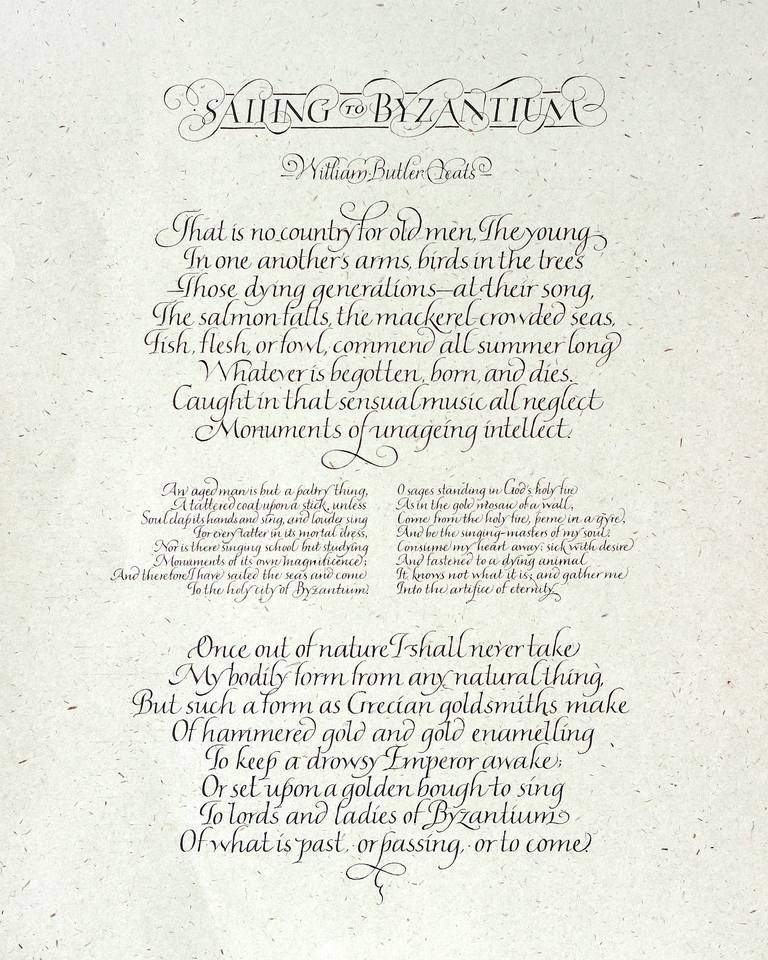 SAILING TO BYZANTIUM
William Butler Yeats
That is no country for old men. The young
In one another's arms, birds in the trees
—Those dying generations—at their song,
The salmon-falls, the mackerel-crowded seas,
Fish, flesh, or fowl, commend all summer long
Whatever is begotten, born, and dies.
Caught in that sensual music all neglect
Monuments of unageing intellect.
An aged man is but a paltry thing,
A tattered coat upon a stick, unless
Soul clap its hands and sing, and louder sing
For every tatter in its mortal dress,
Nor is there singing school but studying
Monuments of its own magnificence;
And therefore I have sailed the seas and come
To the holy city of Byzantium.
O sages standing in God's holy fire
As in the gold mosaic of a wall,
Come from the holy fire, perne in a gyre,
And be the singing-masters of my soul.
Consume my heart away; sick with desire
And fastened to a dying animal
It knows not what it is; and gather me
Into the artifice of eternity.
Once out of nature I shall never take
My bodily form from any natural thing,
But such a form as Grecian goldsmiths make
Of hammered gold and gold enamelling
To keep a drowsy Emperor awake;
Or set upon a golden bough to sing
To lords and ladies of Byzantium
Of what is past, or passing, or to come.